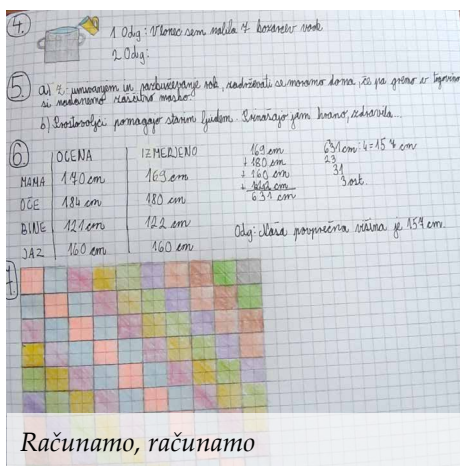 4.
1 Odg: V lonec sem nalila 7 kozarcev vode
2 Odg:
5. a) Z umivanjem in razkuževanje rok, zadrževati se moramo doma, če pa gremo v trgovino
si nadenemo zaščitno masko.
b) Prostovoljci pomagajo starim ljudem. Prinašajo jim hrano, zdravila...
6.
OCENA IZMERJENO
MAMA 170 cm 169 cm
OČE 184 cm 180 cm
BINE 121 cm 122 cm
JAZ 160 cm 160 cm
169 cm
+ 180 cm
+ 160 cm
+ 122 cm
631 cm
631 cm : 4 = 157 cm
23
31
3 ost.
Odg: Naša povprečna višina je 157 cm.
7.
Računamo, računamo